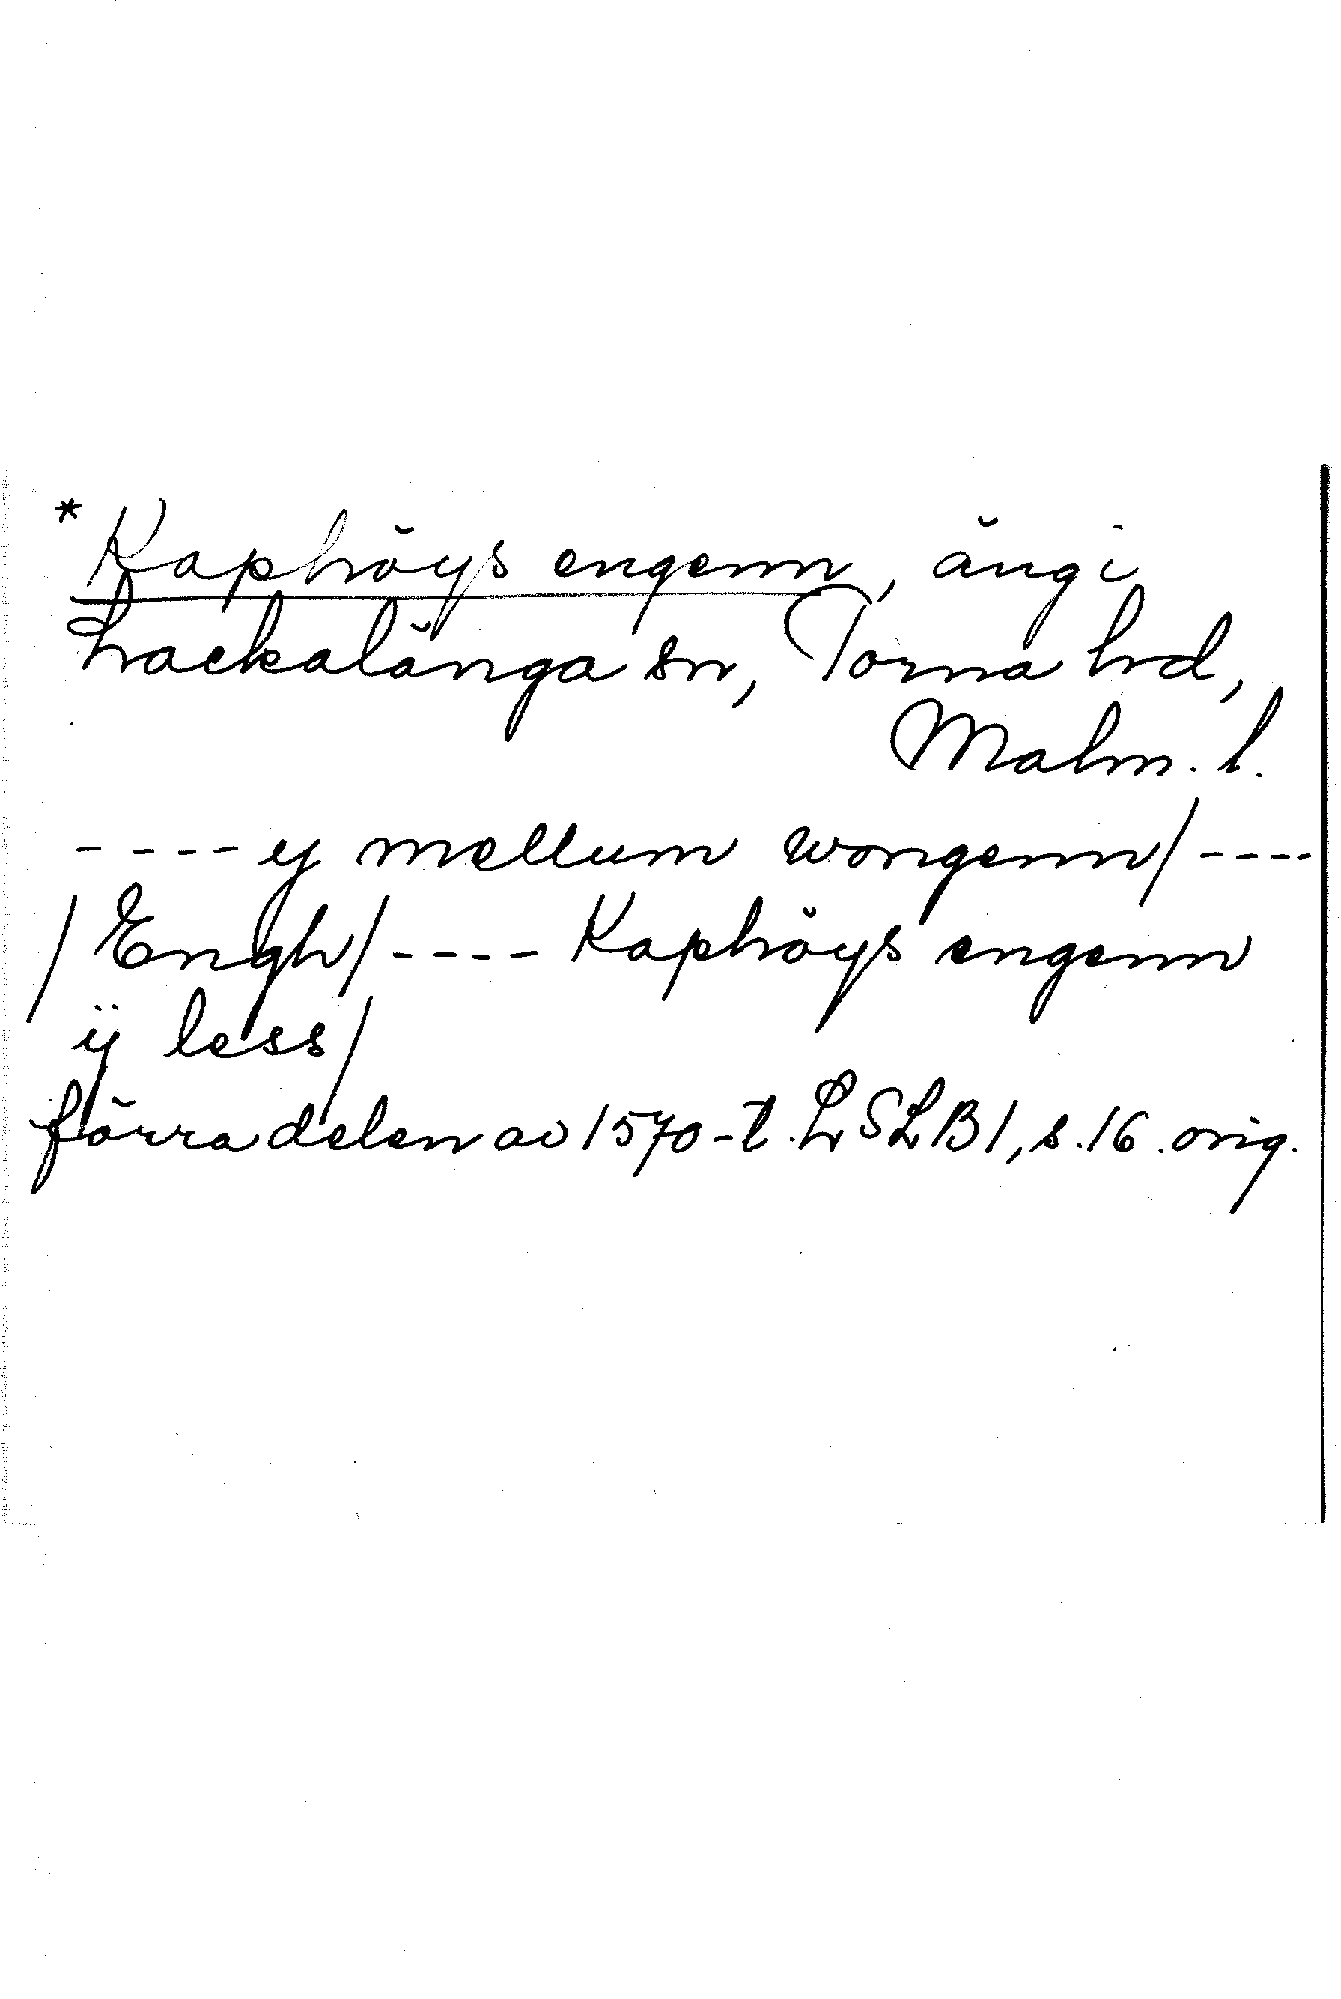 *Kaphöys engenn, äng i
Lackalänga sn, Torna hd,
Malm. l.
----y mellum wongenn/----
/Engh/---- Kaphöys engenn
ÿ less/
förra delen av 1570-t. LSLB1, s. 16. orig.